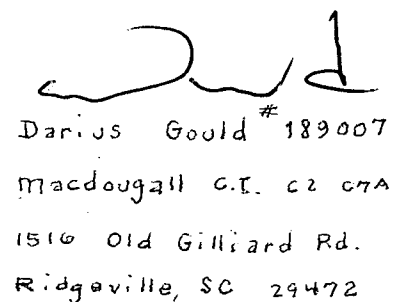 Darius Gould #189007
Macdougall C.I. C2 C7A
1516 Old Gilliard Rd.
Ridgeville, SC 29472